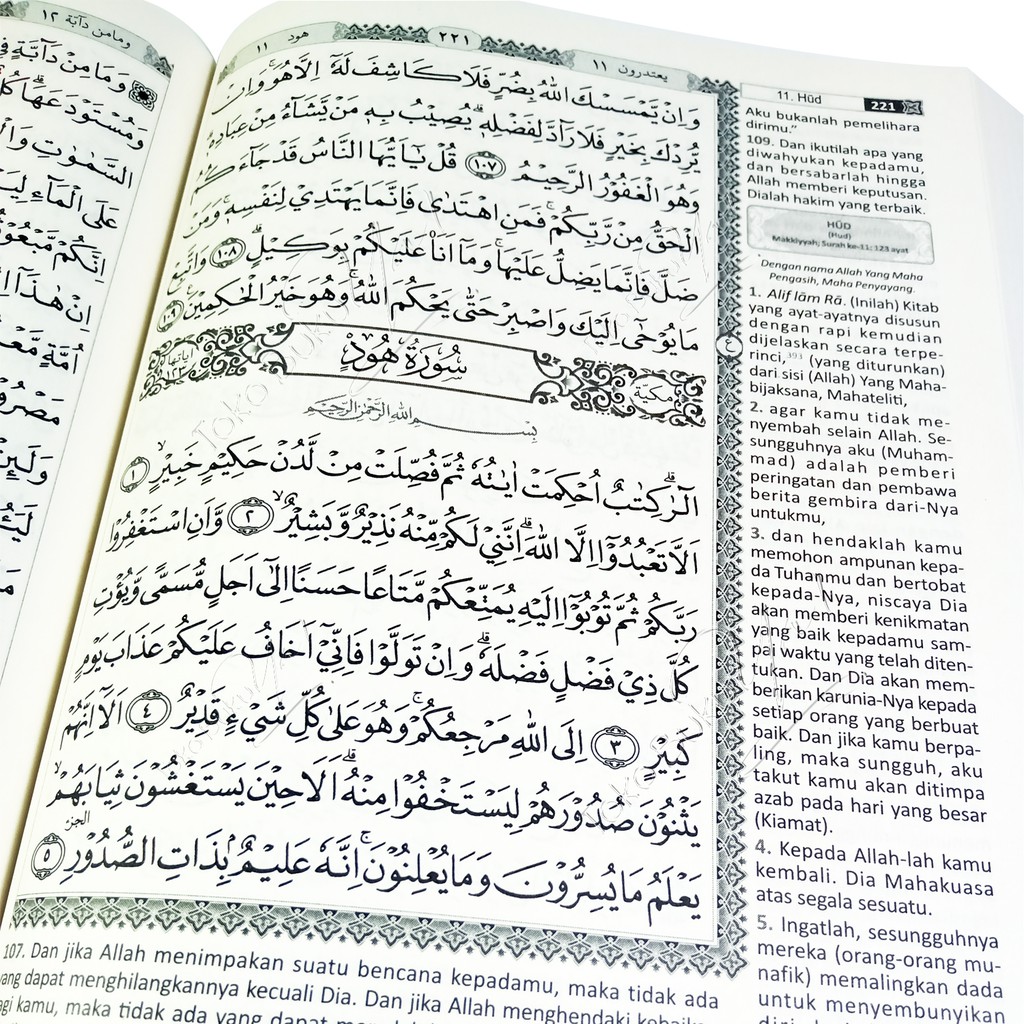 يعتذرون ١١
٢٢١
هود ١١
وَاِنْ يَّمْسَسْكَ اللّٰهُ بِضُرٍّ فَلَا كَاشِفَ لَهٗٓ اِلَّا هُوَ ۚوَاِنْ
يُّرِدْكَ بِخَيْرٍ فَلَا رَاۤدَّ لِفَضْلِهٖۗ يُصِيْبُ بِهٖ مَنْ يَّشَاۤءُ مِنْ عِبَادِهٖ ۗ
وَهُوَ الْغَفُوْرُ الرَّحِيْمُ ١٠٧ قُلْ يٰٓاَيُّهَا النَّاسُ قَدْ جَاۤءَكُمُ
الْحَقُّ مِنْ رَّبِّكُمْ ۚ فَمَنِ اهْتَدٰى فَاِنَّمَا يَهْتَدِيْ لِنَفْسِهٖ ۚ وَمَنْ
ضَلَّ فَاِنَّمَا يَضِلُّ عَلَيْهَا ۚ وَمَآ اَنَا۠ عَلَيْكُمْ بِوَكِيْلٍۗ ١٠٨ وَاتَّبِعْ
مَا يُوْحٰىٓ اِلَيْكَ وَاصْبِرْ حَتّٰى يَحْكُمَ اللّٰهُ ۚ وَهُوَ خَيْرُ الْحٰكِمِيْنَ ١٠٩
مكية
سُوْرَةُ هُوْدٍ
اياتها ١٢٣
بسم الله الرحمن الرحيم
الۤرٰ ۗ كِتٰبٌ اُحْكِمَتْ اٰيٰتُهٗ ثُمَّ فُصِّلَتْ مِنْ لَّدُنْ حَكِيْمٍ خَبِيْرٍ ۙ ١
اَلَّا تَعْبُدُوْٓا اِلَّا اللّٰهَ ۗ اِنَّنِيْ لَكُمْ مِّنْهُ نَذِيْرٌ وَّبَشِيْرٌ ۙ ٢ وَّاَنِ اسْتَغْفِرُوْا
رَبَّكُمْ ثُمَّ تُوْبُوْٓا اِلَيْهِ يُمَتِّعْكُمْ مَّتَاعًا حَسَنًا اِلٰٓى اَجَلٍ مُّسَمًّى وَّيُؤْتِ
كُلَّ ذِيْ فَضْلٍ فَضْلَهٗ ۗ وَاِنْ تَوَلَّوْا فَاِنِّيْٓ اَخَافُ عَلَيْكُمْ عَذَابَ يَوْمٍ
كَبِيْرٍ ٣ اِلَى اللّٰهِ مَرْجِعُكُمْ ۚ وَهُوَ عَلٰى كُلِّ شَيْءٍ قَدِيْرٌ ٤ اَلَآ اِنَّهُمْ
يَثْنُوْنَ صُدُوْرَهُمْ لِيَسْتَخْفُوْا مِنْهُ ۗ اَلَا حِيْنَ يَسْتَغْشُوْنَ ثِيَابَهُمْ ۙ
يَعْلَمُ مَا يُسِرُّوْنَ وَمَا يُعْلِنُوْنَ ۚ اِنَّهٗ عَلِيْمٌ ۢ بِذَاتِ الصُّدُوْرِ ٥
الجزء
11. Hūd 221
Aku bukanlah pemelihara
dirimu."
109. Dan ikutilah apa yang
diwahyukan kepadamu,
dan bersabarlah hingga
Allah memberi keputusan.
Dialah hakim yang terbaik.
HŪD
(Hud)
Makkiyyah, Surah ke-11: 123 ayat
Dengan nama Allah Yang Maha
Pengasih, Maha Penyayang.
1. Alif lām Rā. (Inilah) Kitab
yang ayat-ayatnya disusun
dengan rapi kemudian
dijelaskan secara terpe-
rinci,393 (yang diturunkan)
dari sisi (Allah) Yang Maha-
bijaksana, Mahateliti,
2. agar kamu tidak me-
nyembah selain Allah. Se-
sungguhnya aku (Muham-
mad) adalah pemberi
peringatan dan pembawa
berita gembira dari-Nya
untukmu,
3. dan hendaklah kamu
memohon ampunan kepa-
da Tuhanmu dan bertobat
kepada-Nya, niscaya Dia
akan memberi kenikmatan
yang baik kepadamu sam-
pai waktu yang telah diten-
tukan. Dan Dia akan mem-
berikan karunia-Nya kepada
setiap orang yang berbuat
baik. Dan jika kamu berpa-
ling, maka sungguh, aku
takut kamu akan ditimpa
azab pada hari yang besar
(Kiamat).
4. Kepada Allah-lah kamu
kembali. Dia Mahakuasa
atas segala sesuatu.
5. Ingatlah, sesungguhnya
mereka (orang-orang mu-
nafik) memalingkan dada
untuk menyembunyikan
107. Dan jika Allah menimpakan suatu bencana kepadamu, maka tidak ada
yang dapat menghilangkannya kecuali Dia. Dan jika Allah menghendaki
kamu, maka tidak ada yang dapat
ومامن دآبة ١٢
وَمَا مِنْ دَاۤبَّةٍ
وَمُسْتَوْدَعَهَا ۗ
السَّمٰوٰتِ
عَلَى الْمَاۤءِ
اِنَّكُمْ
اِنْ هٰذَآ
اُمَّةٍ